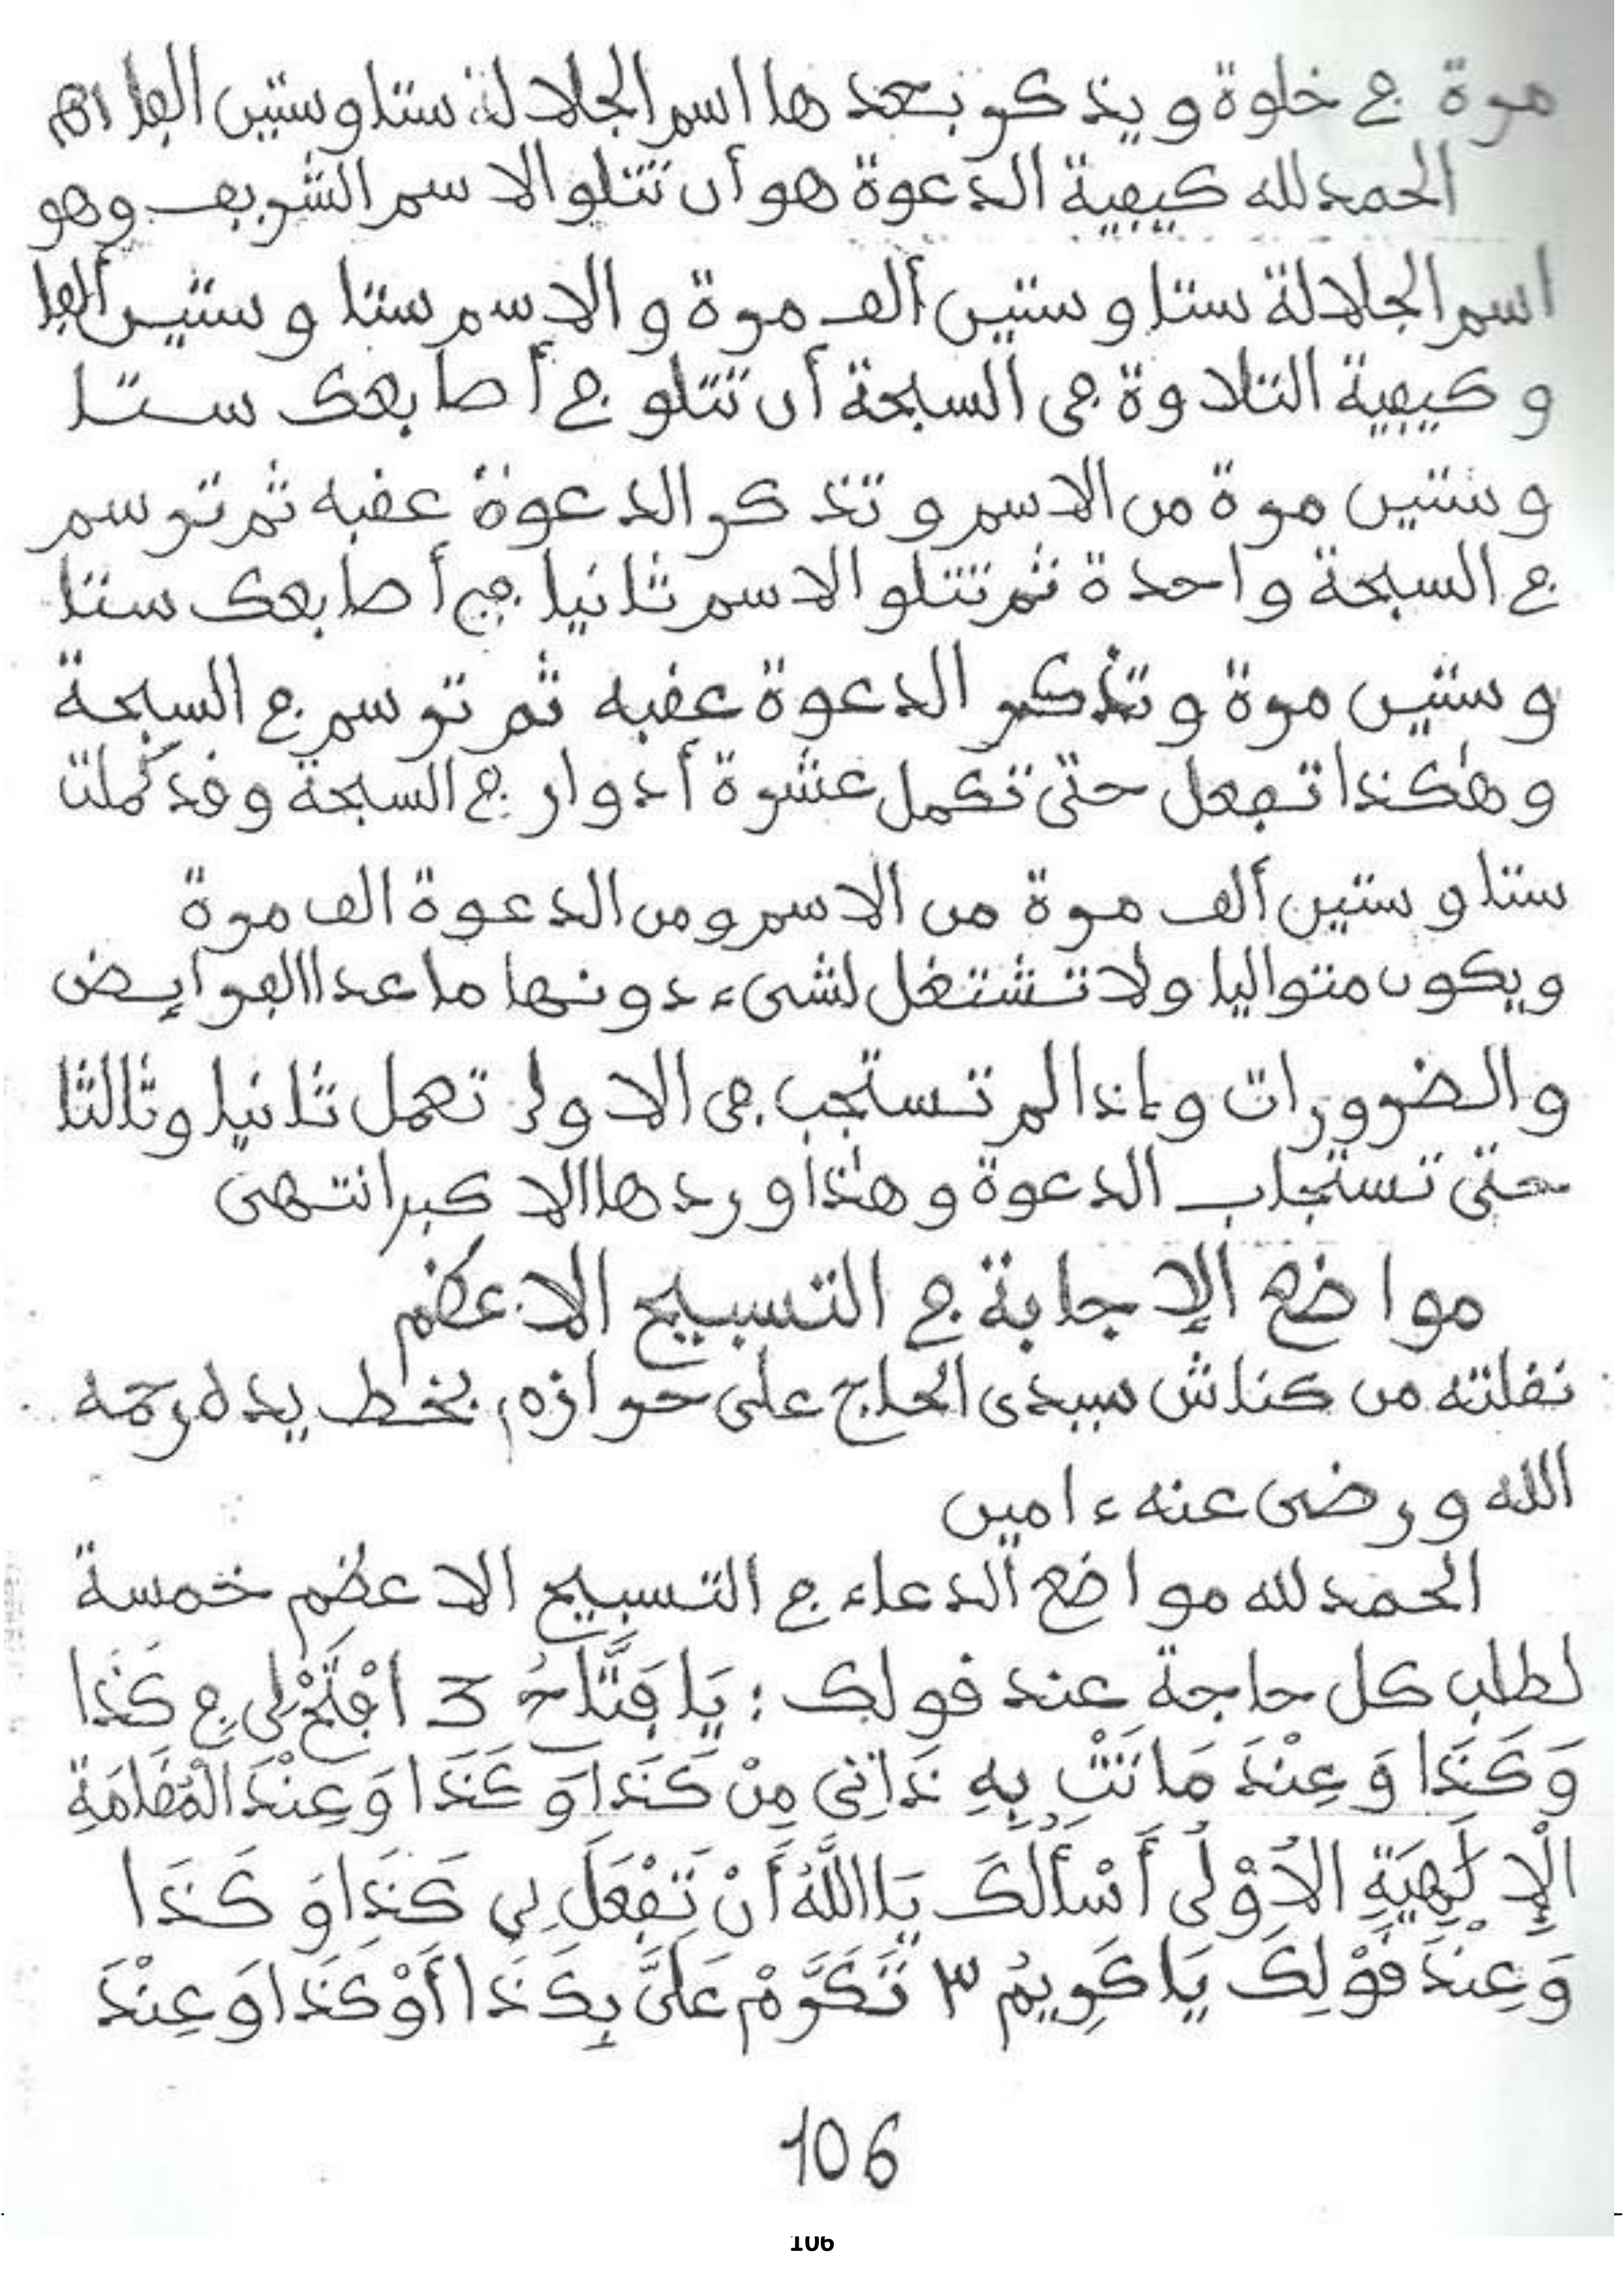 مرة في خلوة ويذكر بعدها اسم الجلالة ستا وستين الفا اهـ
الحمد لله كيفية الدعوة هو أن تتلو الاسم الشريف وهو
اسم الجلالة ستا وستين ألف مرة والاسم ستا وستين ألفا
وكيفية التلاوة في السبحة أن تتلو في أصابعك ستا
وستين مرة من الاسم وتذكر الدعوة عقبه ثم ترسم
في السبحة واحدة ثم تتلو الاسم ثانيا في أصابعك ستا
وستين مرة وتذكر الدعوة عقبه ثم ترسم في السبحة
وهكذا تفعل حتى تكمل عشرة أدوار في السبحة وقد كملت
ستا وستين ألف مرة من الاسم ومن الدعوة الف مرة
ويكون متواليا ولا تشتغل لشىء دونها ما عدا الفرايض
والضرورات وإذا لم تستجب في الاولى تعمل ثانيا وثالثا
حتى تستجاب الدعوة وهذا وردها الاكبر انتهى
مواضع الإجابة في التسبيح الاعظم
نقلته من كناش سيدى الحاج على حرازم بخط يده رحمه
الله ورضى عنه ءامين
الحمد لله مواضع الدعاء في التسبيح الاعظم خمسة
لطلب كل حاجة عند قولك : يَا فَتَّاحُ 3 افْتَحْ لِى فِي كَذَا
وَكَذَا وَعِنْدَ مَا نَتْ بِهِ ذَاتِى مِنْ كَذَا وَكَذَا وَعِنْدَ الْعَظَمَةِ
الْإِلَهِيَةِ الْاُوْلَى أَسْأَلُكَ يَا اللَّهُ أَنْ تَفْعَلَ بِي كَذَا وَكَذَا
وَعِنْدَ قَوْلِكَ يَا كَرِيمُ ٣ تَكَرَّمْ عَلَىَّ بِكَذَا أَوْ كَذَا وَعِنْدَ
106
106